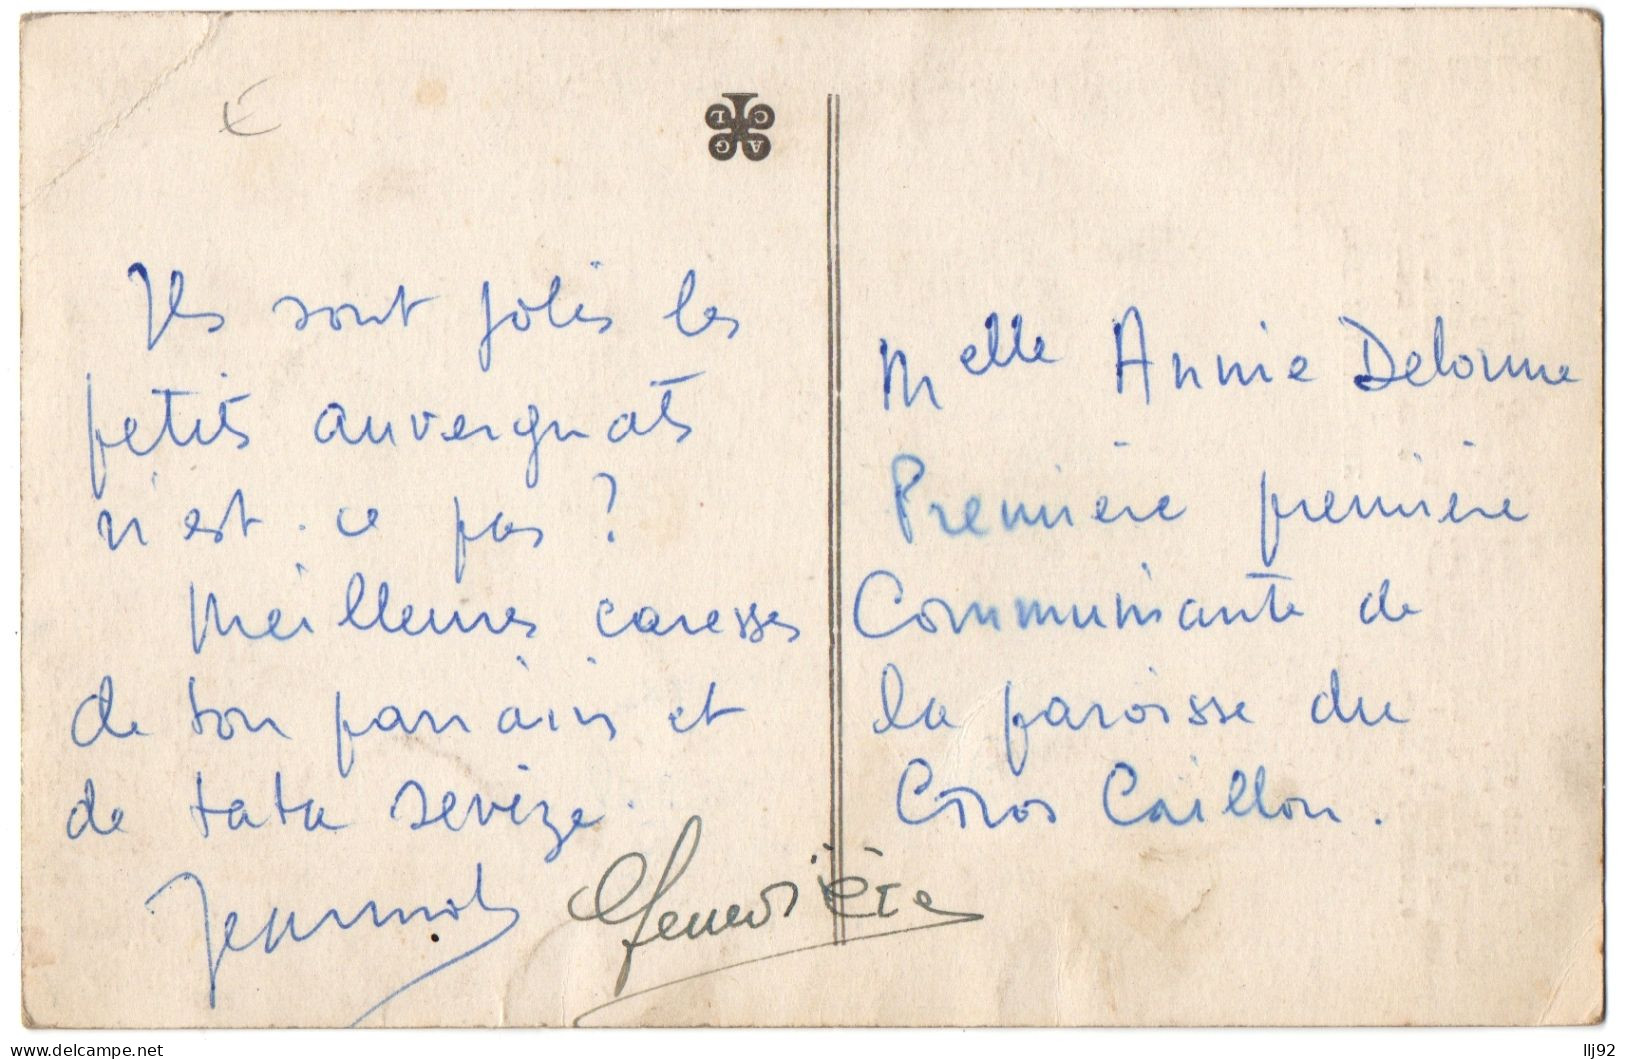 Ils sont jolis les
petits auvergnats
n'est-ce pas ?
Meilleures caresses
de ton parrain et
de tata
Geneviève
Melle Annie Delorme
Première première
Communiante de
la paroisse du
Caillou.
A G
C L
delcampe.net
llj92